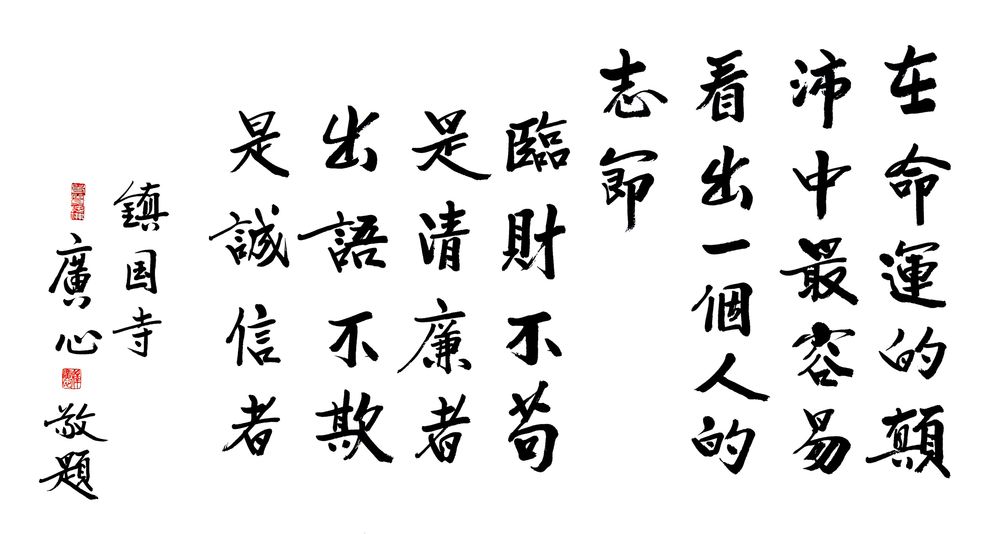 在命運的顛
沛中最容易
看出一個人的
志節
臨財不苟
是清廉者
出語不欺
是誠信者
鎮国寺
廣心敬題